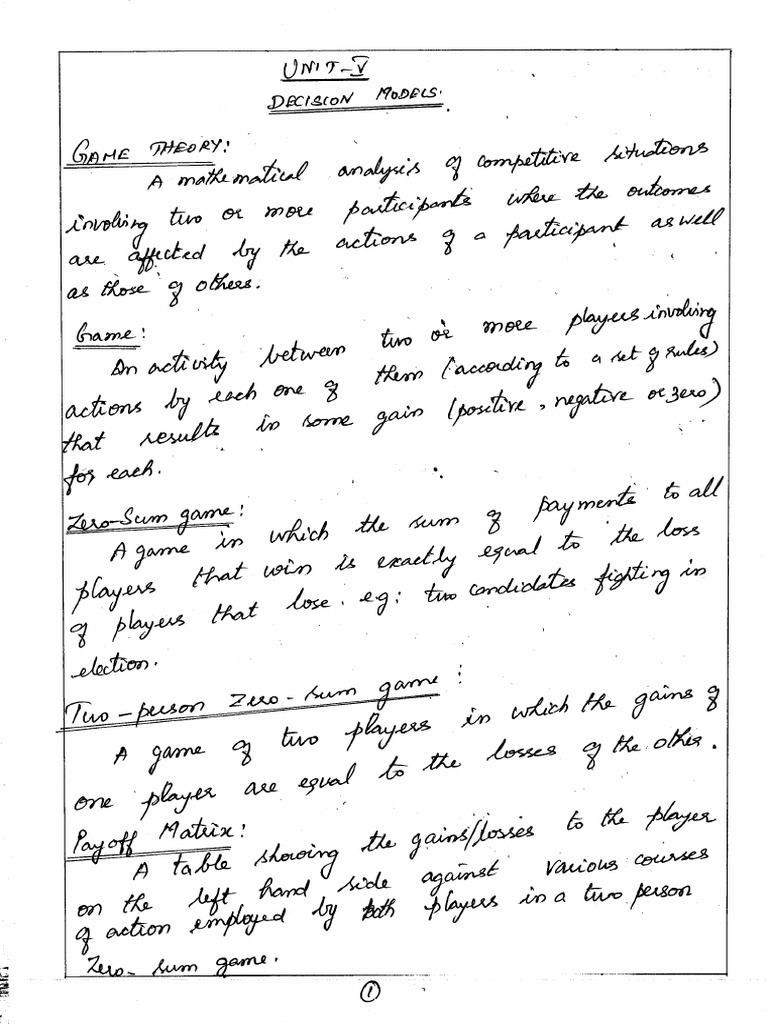 UNIT-V
DECISION MODELS.
GAME THEORY:
A mathematical analysis of competitive situations
involving two or more participants where the outcomes
are affected by the actions of a participant as well
as those of others.
Game:
An activity between two or more players involving
actions by each one of them (according to a set of rules)
that results in some gain (positive, negative or zero)
for each.
Zero-Sum game:
A game in which the sum of payments to all
players that win is exactly equal to the loss
of players that lose. eg: two candidates fighting in
election.
Two-person Zero-sum game:
A game of two players in which the gains of
one player are equal to the losses of the other.
Payoff Matrix:
A table showing the gains/losses to the player
on the left hand side against various courses
of action employed by both players in a two person
Zero-sum game.
1